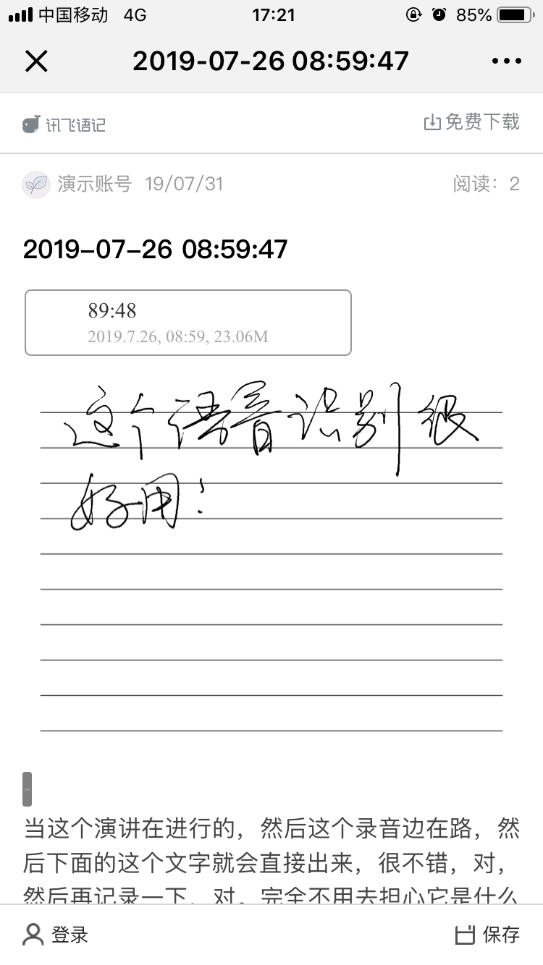 中国移动 4G 17:21 85%
2019-07-26 08:59:47
讯飞语记 免费下载
演示账号 19/07/31 阅读：2
2019-07-26 08:59:47
89:48
2019.7.26, 08:59, 23.06M
这个语音识别很
好用！
当这个演讲在进行的，然后这个录音边在路，然
后下面的这个文字就会直接出来，很不错，对，
然后再记录一下，对。完全不用去担心它是什么
登录 保存